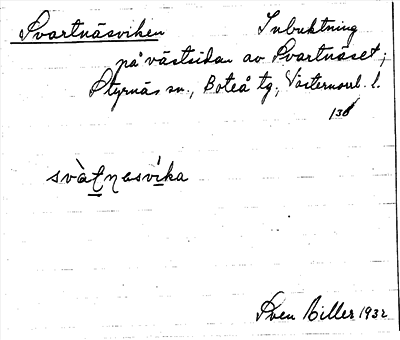 Svartnäsviken Inbuktning
på västsidan av Svartnäset;
Styrnäs sn., Boteå tg., Västernorrl. l.
136
svàt̲nasvi̲ka
Sven Hiller 1932